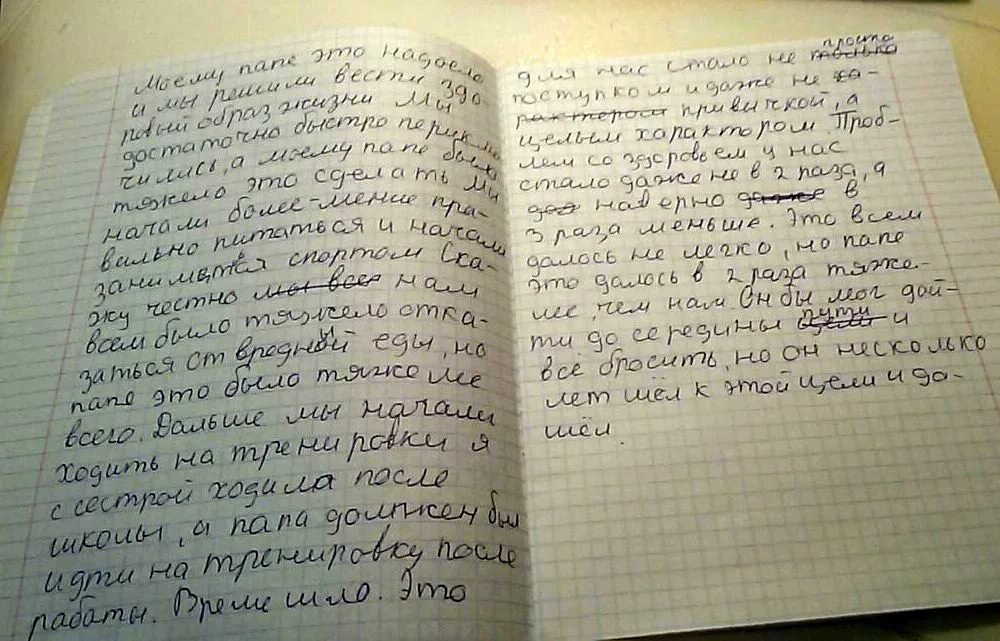 Моему папе это надоело
и мы решили вести здо
ровый образ жизни. Мы
достаточно быстро
чились, а моему папе было
тяжело это сделать Мы
начали более-мение пра-
вильно питаться и начали
заниматся спортом Ска-
жу честно мы все нам
всем было тяжело отка-
заться от вредный еды, но
папе это было тяжелее
всего. Дальше мы начали
ходить на тренировки я
с сестрой ходила после
школы, а папа должен был
идти на тренировку после
работы. Време шло. Это
для нас стало не просто
только
поступком и даже не ха-
рактером привичкой, а
целым характором. Проб-
лем со здоровьем у нас
стало даже не в 2 раза, а
наверно даже в
3 раза меньше. Это всем
далось не легко, но папе
это далось в 2 раза тяже-
лее, чем нам Он бы мог дой-
ти до середины пути и
всё бросить, но он несколько
лет шёл к этой цели и до-
шёл.